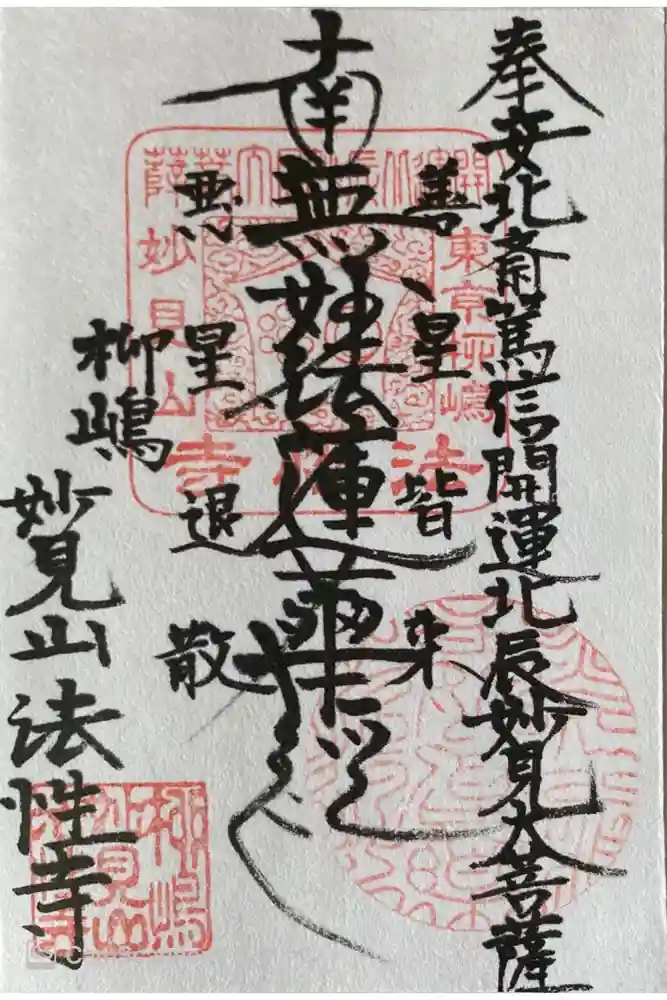 奉安北斎篤信開運北辰妙見大菩薩
善星皆来
南無妙法蓮華経
悪星退散
柳嶋
妙見山法性寺
開運
大菩薩
東京柳嶋
妙見山
法性寺
柳嶋
妙見山
法性寺